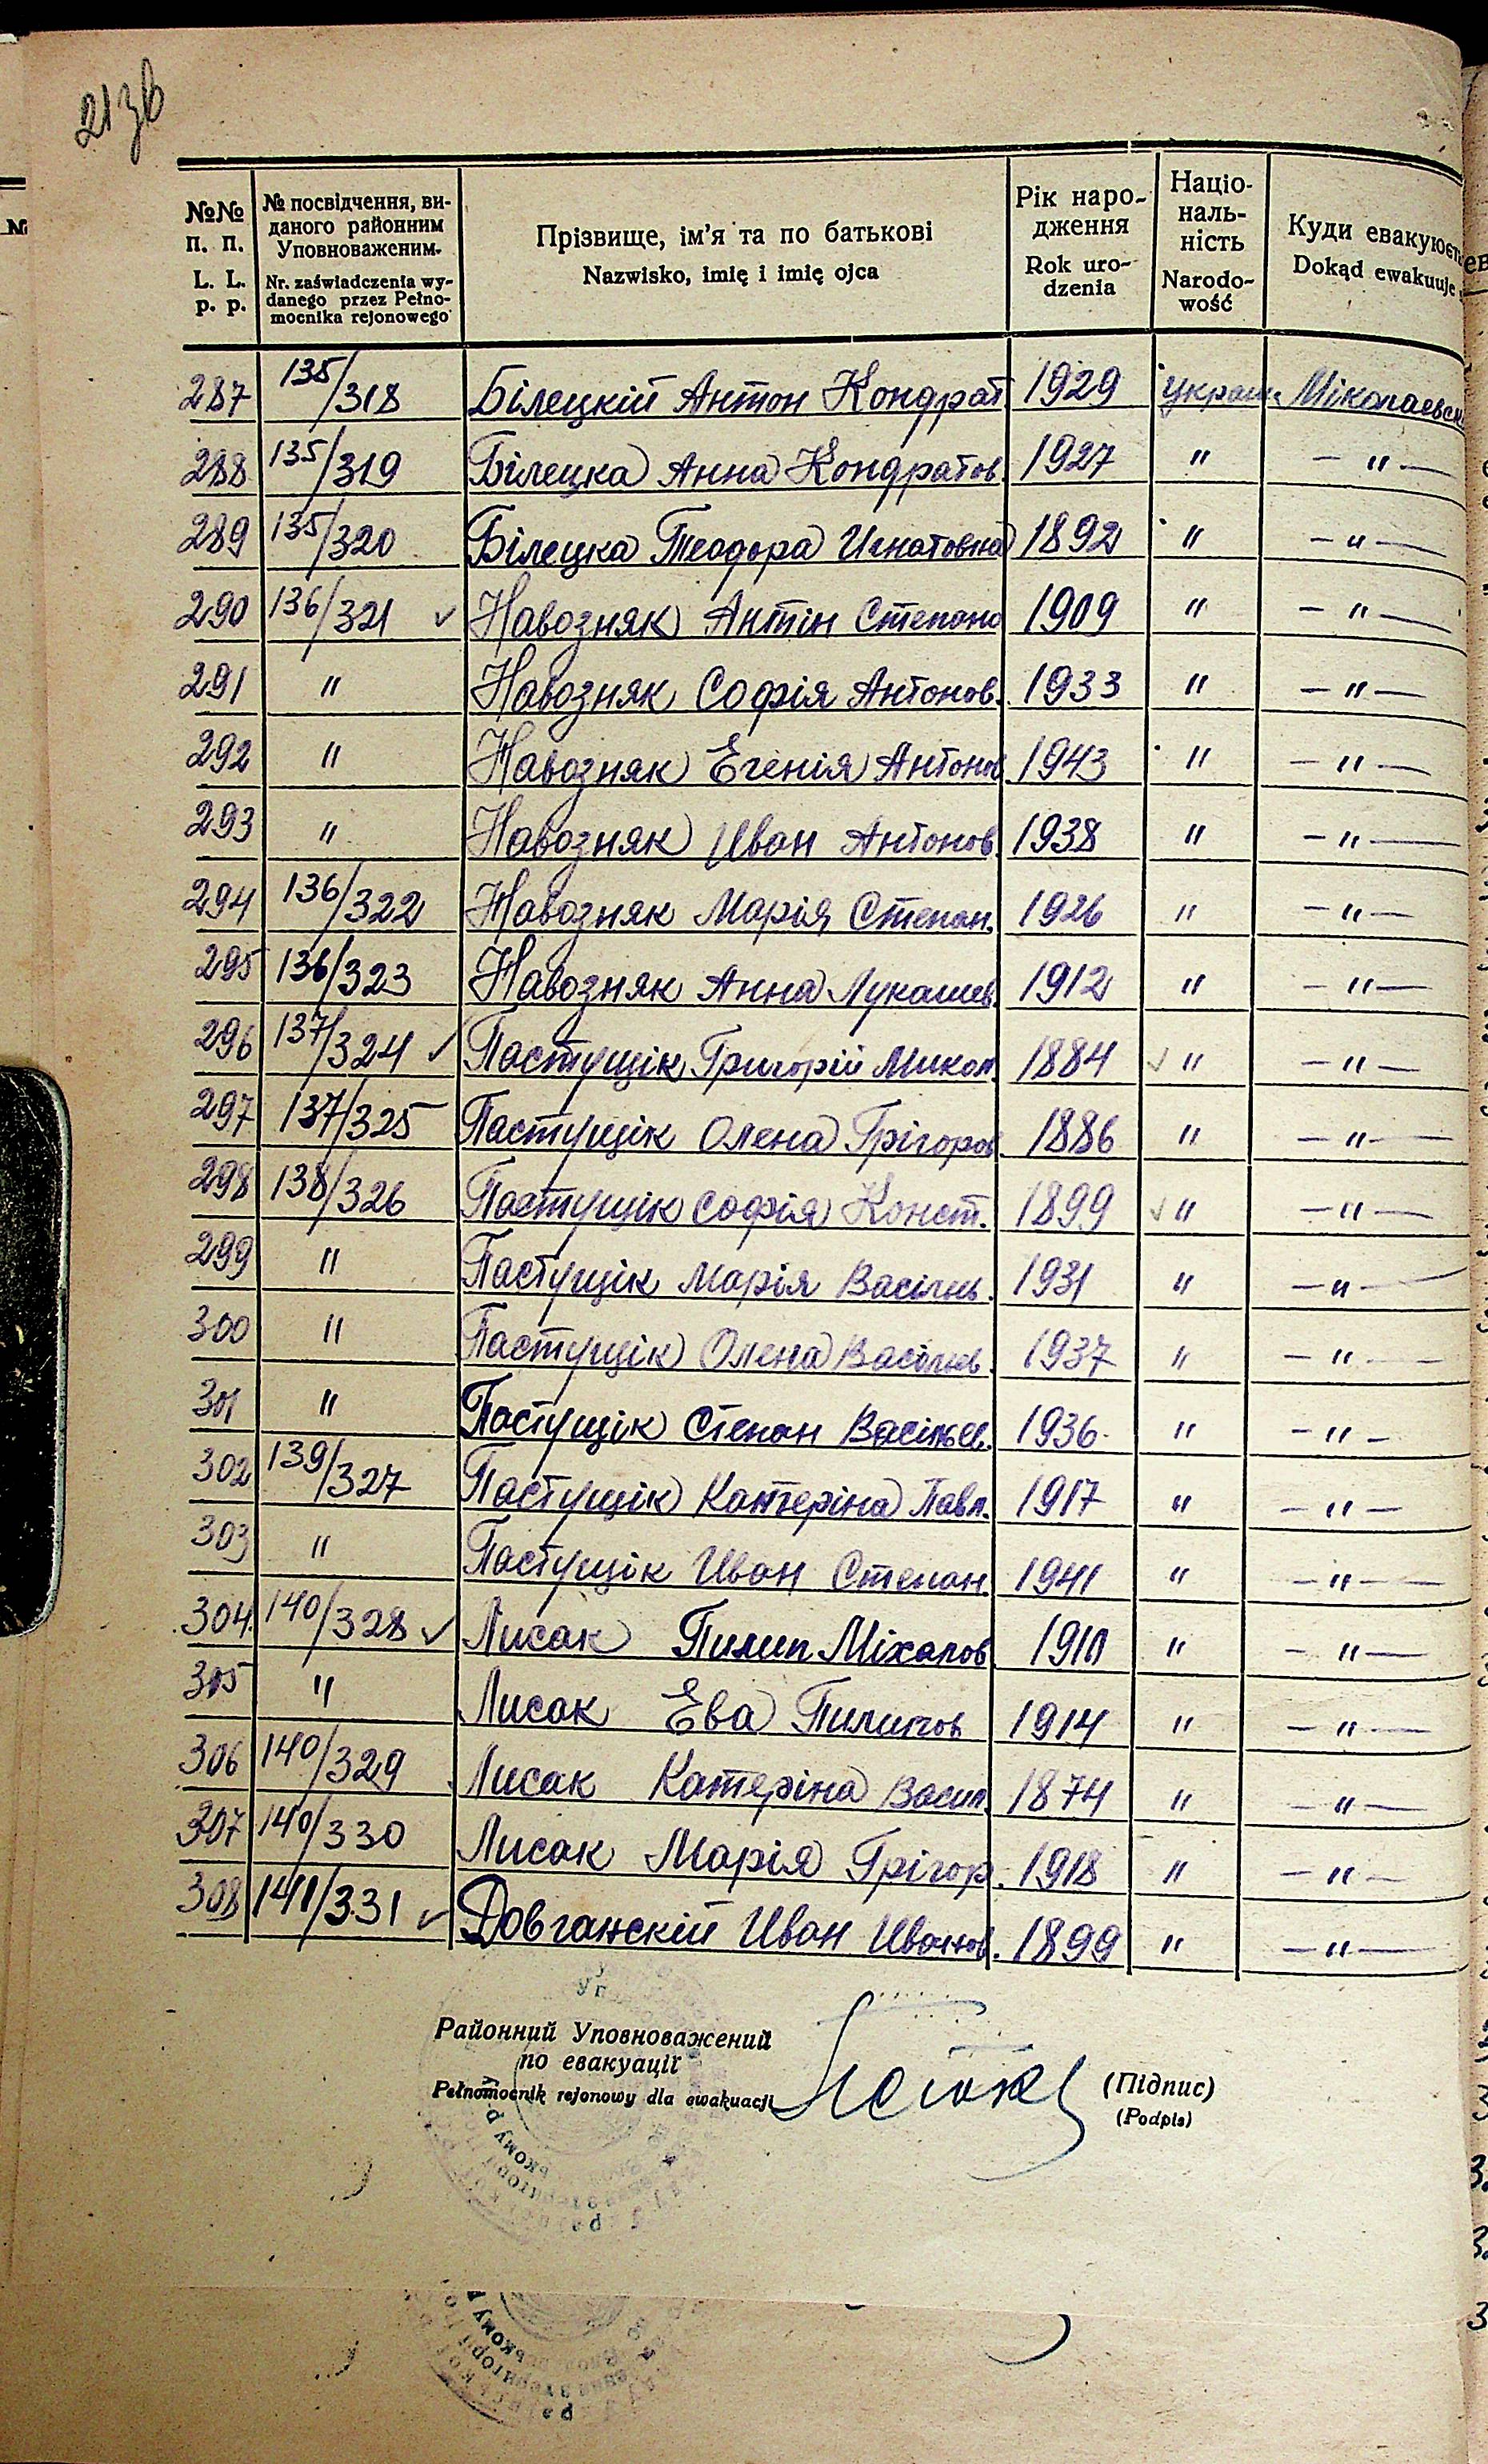 213в
№№ п. п.
L. L. p. p.
№ посвідчення, ви-
даного районним
Уповноваженим.
Nr. zaświadczenia wy-
danego przez Pełno-
mocnika rejonowego
Прізвище, ім'я та по батькові
Nazwisko, imię i imię ojca
Рік наро-
дження
Rok uro-
dzenia
Націо-
наль-
ність
Narodo-
wość
Куди евакуюєт
Dokąd ewakuuje
287 135/318 Білецкій Антон Кондрат 1929 украин. Міколаевск
288 135/319 Білецка Анна Кондратов. 1927 " – " –
289 135/320 Білецка Теодора Игнатовна 1892 " – " –
290 136/321 ✓ Навозняк Антін Степано 1909 " – " –
291 " Навозняк Софія Антонов. 1933 " – " –
292 " Навозняк Егенія Антонов 1943 " – " –
293 " Навозняк Иван Антонов. 1938 " – " –
294 136/322 Навозняк Марія Степан. 1926 " – " –
295 136/323 Навозняк Анна Лукашев. 1912 " – " –
296 137/324 ✓ Пастущік Григорій Микол. 1884 ✓ " – " –
297 137/325 Пастущік Олена Грігоров. 1886 " – " –
298 138/326 Пастущік Софія Конст. 1899 ✓ " – " –
299 " Пастущік Марія Васільь. 1931 " – " –
300 " Пастущік Олена Васільев. 1937 " – " –
301 " Пастущік Степан Васільев. 1936 " – " –
302 139/327 Пастущік Катеріна Павл. 1917 " – " –
303 " Пастущік Иван Степан. 1941 " – " –
304. 140/328 ✓ Лисак Пилип Міхалов. 1910 " – " –
305 " Лисак Ева Пилипов 1914 " – " –
306 140/329 Лисак Катеріна Васил. 1874 " – " –
307 140/330 Лисак Марія Грігор. 1918 " – " –
308 141/331 ✓ Довганскій Иван Иванов. 1899 " – " –
Районний Уповноважений
по евакуації
Pełnomocnik rejonowy dla ewakuacji
(Підпис)
(Podpis)